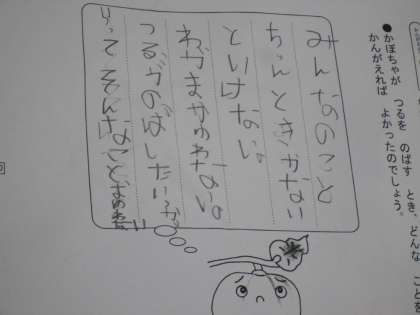 ●かぼちゃが つるを のばす とき、どんな ことを
かんがえれば よかったのでしょう。
みんなのこと
ちんときかない
といけない。
つるがのばしたいか
らってそんなこと